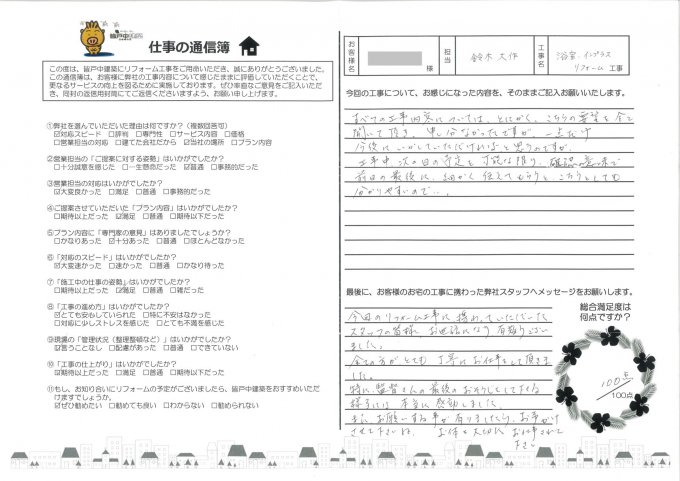 皆戸中建築
仕事の通信簿
この度は、皆戸中建築にリフォーム工事をご用命いただき、誠にありがとうございました。
この通信簿は、お客様に弊社の工事内容について感じたままに評価していただくことで、
更なるサービスの向上を図るために実施しております。ぜひ率直なご意見をご記入いただ
き、同封の返信用封筒にてご返信くださいますよう、お願い申し上げます。
①弊社を選んでいただいた理由は何ですか？（複数回答可）
☑対応スピード □評判 □専門性 □サービス内容 □価格
□営業担当の対応 □建てた会社だから ☑当社の場所 □プラン内容
②営業担当の「ご提案に対する姿勢」はいかがでしたか？
□十分誠意を感じた □一生懸命だった ☑普通 □事務的だった
③営業担当の対応はいかがでしたか？
☑大変良かった □満足 □普通 □事務的だった
④ご提案させていただいた「プラン内容」はいかがでしたか？
□期待以上だった ☑満足 □普通 □期待以下だった
⑤プラン内容に「専門家の意見」はありましたでしょうか？
□かなりあった ☑十分あった □普通 □ほとんどなかった
⑥「対応のスピード」はいかがでしたか？
☑大変速かった □速かった □普通 □かなり待った
⑦「施工中の仕事の姿勢」はいかがでしたか？
□期待以上だった ☑満足 □普通 □雑だった
⑧「工事の進め方」はいかがでしたか？
☑とても安心していられた □特に不安はなかった
□対応に少しストレスを感じた □とても不満を感じた
⑨現場の「管理状況（整理整頓など）」はいかがでしたか？
☑言うことなし □配慮があった □普通 □できていない
⑩「工事の仕上がり」はいかがでしたか？
☑期待以上だった □期待通り □普通 □期待以下だった
⑪もし、お知り合いにリフォームの予定がございましたら、皆戸中建築をおすすめいただ
けますでしょうか。
☑ぜひ勧めたい □勧めても良い □わからない □勧められない
お客様名
様
担当
鈴木 大作
工事名
浴室、インプラス
リフォーム 工事
今回の工事について、お感じになった内容を、そのままご記入お願いいたします。
すべての工事内容については、とにかく、こちらの要望を全て
聞いて頂き、申し分なかったですが、一点だけ
今後にいかしていただければと思うのですが、
工事中、次の日の予定を可能な限り、確認の意味で
前日の最後に、細かく伝えてもらうと、こちらとしても
分かりやすいので…。
最後に、お客様のお宅の工事に携わった弊社スタッフへメッセージをお願いします。
今回のリフォーム工事に携わっていただいた
スタッフの皆様、お世話になり有難うござい
ました。
全ての方がとても丁寧にお仕事をして頂きま
した。
特に、監督さんの最後のおそうじをして下さる
様子には本当に感動しました。
またお願いする事が有りましたら、お声かけ
させて下さいね。 お体を大切に お仕事されて
下さい
総合満足度は
何点ですか？
100点
100点